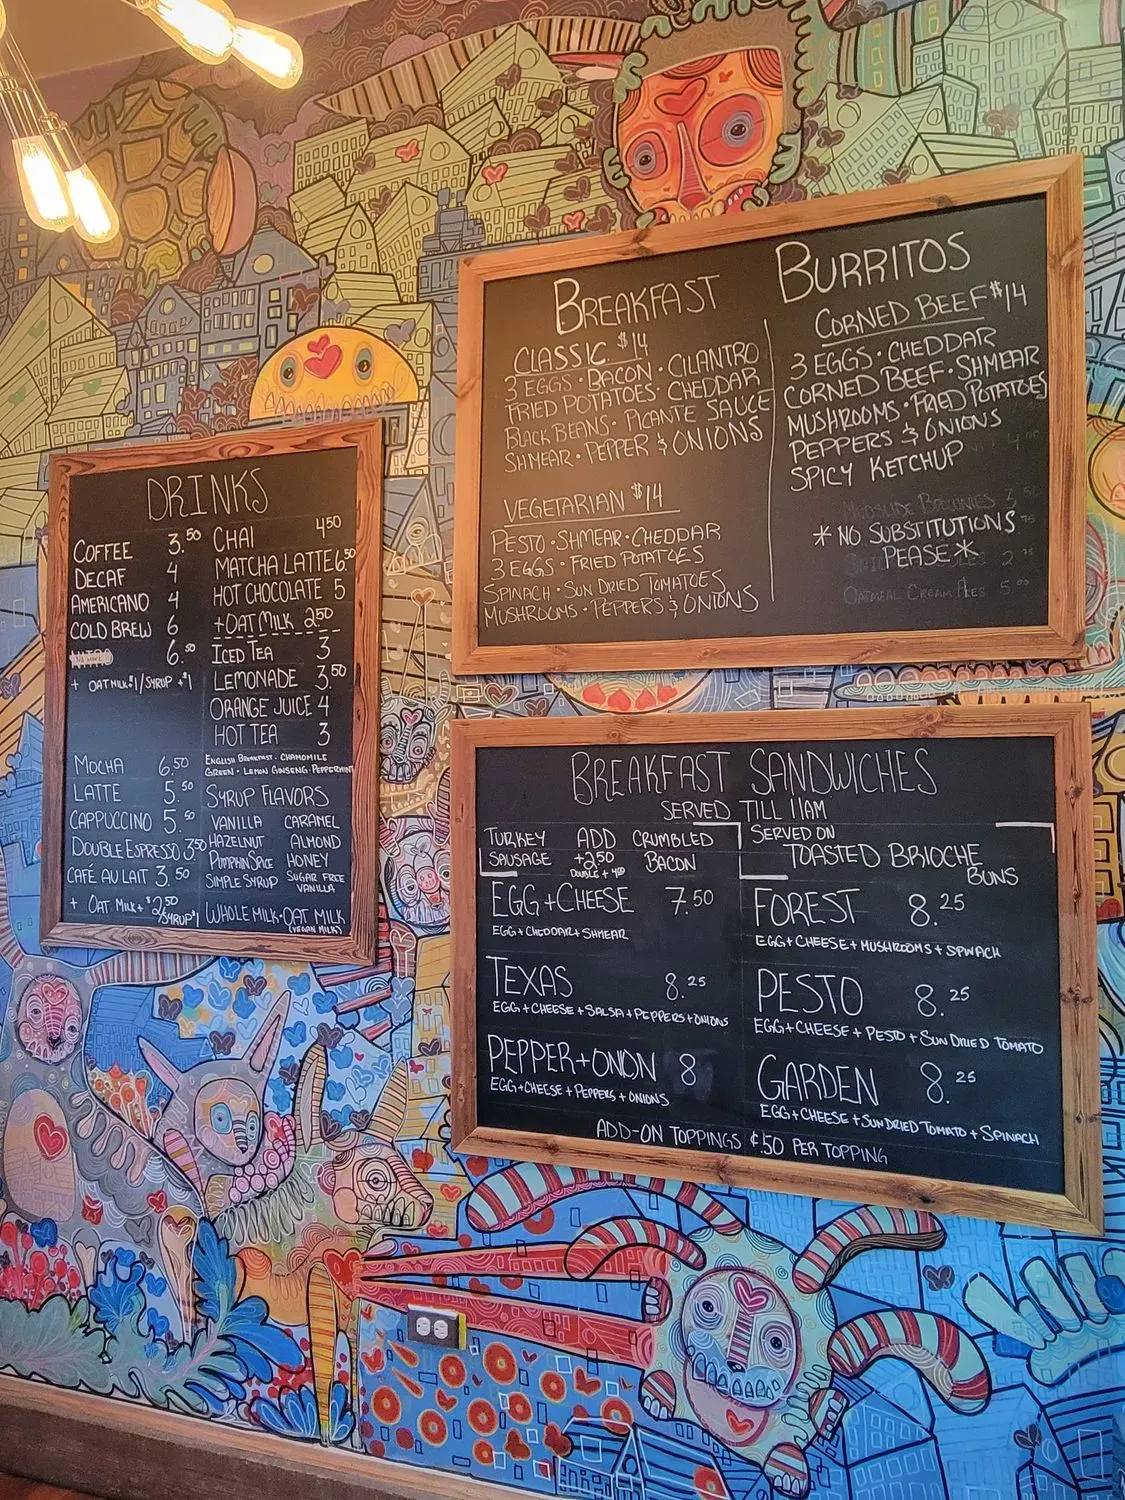 DRINKS
COFFEE 3.50
DECAF 4
AMERICANO 4
COLD BREW 6
6.50
+ OAT MILK $1/SYRUP +$1
MOCHA 6.50
LATTE 5.50
CAPPUCCINO 5.50
DOUBLE ESPRESSO 3.50
CAFÉ AU LAIT 3.50
+ OAT MILK+$2.50/SYRUP $1
CHAI 4.50
MATCHA LATTE 6.50
HOT CHOCOLATE 5
+OAT MILK 2.50
ICED TEA 3
LEMONADE 3.50
ORANGE JUICE 4
HOT TEA 3
ENGLISH BREAKFAST · CHAMOMILE
GREEN · LEMON GINSENG · PEPPERMINT
SYRUP FLAVORS
VANILLA CARAMEL
HAZELNUT ALMOND
PUMPKIN SPICE HONEY
SIMPLE SYRUP SUGAR FREE VANILLA
WHOLE MILK · OAT MILK
(VEGAN MILK)
BREAKFAST BURRITOS
CLASSIC $14
3 EGGS · BACON · CILANTRO
FRIED POTATOES · CHEDDAR
BLACK BEANS · PICANTE SAUCE
SHMEAR · PEPPER & ONIONS
VEGETARIAN $14
PESTO · SHMEAR · CHEDDAR
3 EGGS · FRIED POTATOES
SPINACH · SUN DRIED TOMATOES
MUSHROOMS · PEPPERS & ONIONS
CORNED BEEF $14
3 EGGS · CHEDDAR
CORNED BEEF · SHMEAR
MUSHROOMS · FRIED POTATOES
PEPPERS & ONIONS
SPICY KETCHUP
* NO SUBSTITUTIONS
PEASE *
OATMEAL CREAM PIES 5.00
BREAKFAST SANDWICHES
SERVED TILL 11AM
TURKEY ADD CRUMBLED
SAUSAGE +2.50 BACON
DOUBLE + 4.00
EGG+CHEESE 7.50
EGG + CHEDDAR + SHMEAR
TEXAS 8.25
EGG + CHEESE + SALSA + PEPPERS + ONIONS
PEPPER+ONION 8
EGG+CHEESE + PEPPERS + ONIONS
SERVED ON
TOASTED BRIOCHE
BUNS
FOREST 8.25
EGG + CHEESE + MUSHROOMS + SPINACH
PESTO 8.25
EGG + CHEESE + PESTO + SUN DRIED TOMATO
GARDEN 8.25
EGG + CHEESE + SUNDRIED TOMATO + SPINACH
ADD-ON TOPPINGS ¢.50 PER TOPPING